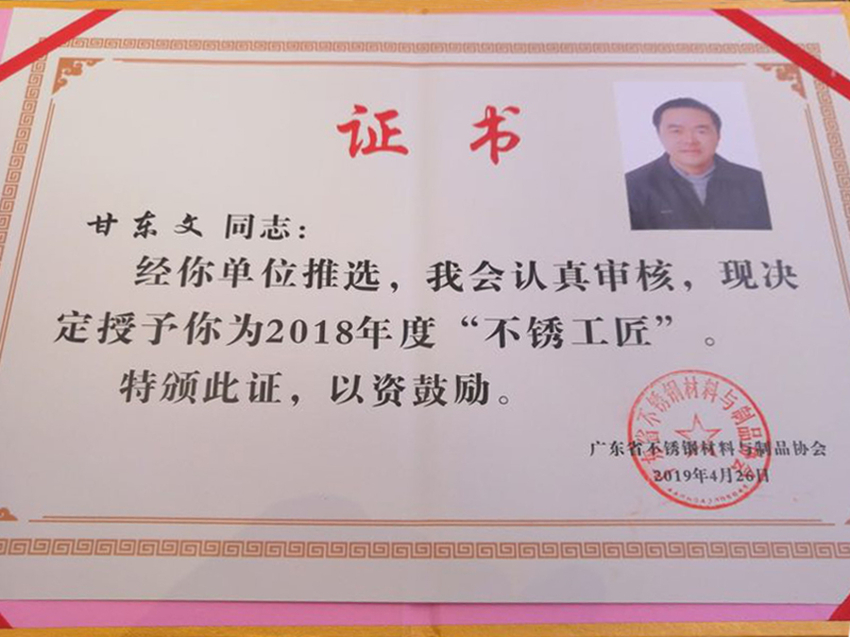 证书
甘东文 同志：
经你单位推选，我会认真审核，现决
定授予你为2018年度“不锈工匠”。
特颁此证，以资鼓励。
广东省不锈钢材料与制品协会
2019年4月26日
广东省不锈钢材料与制品协会